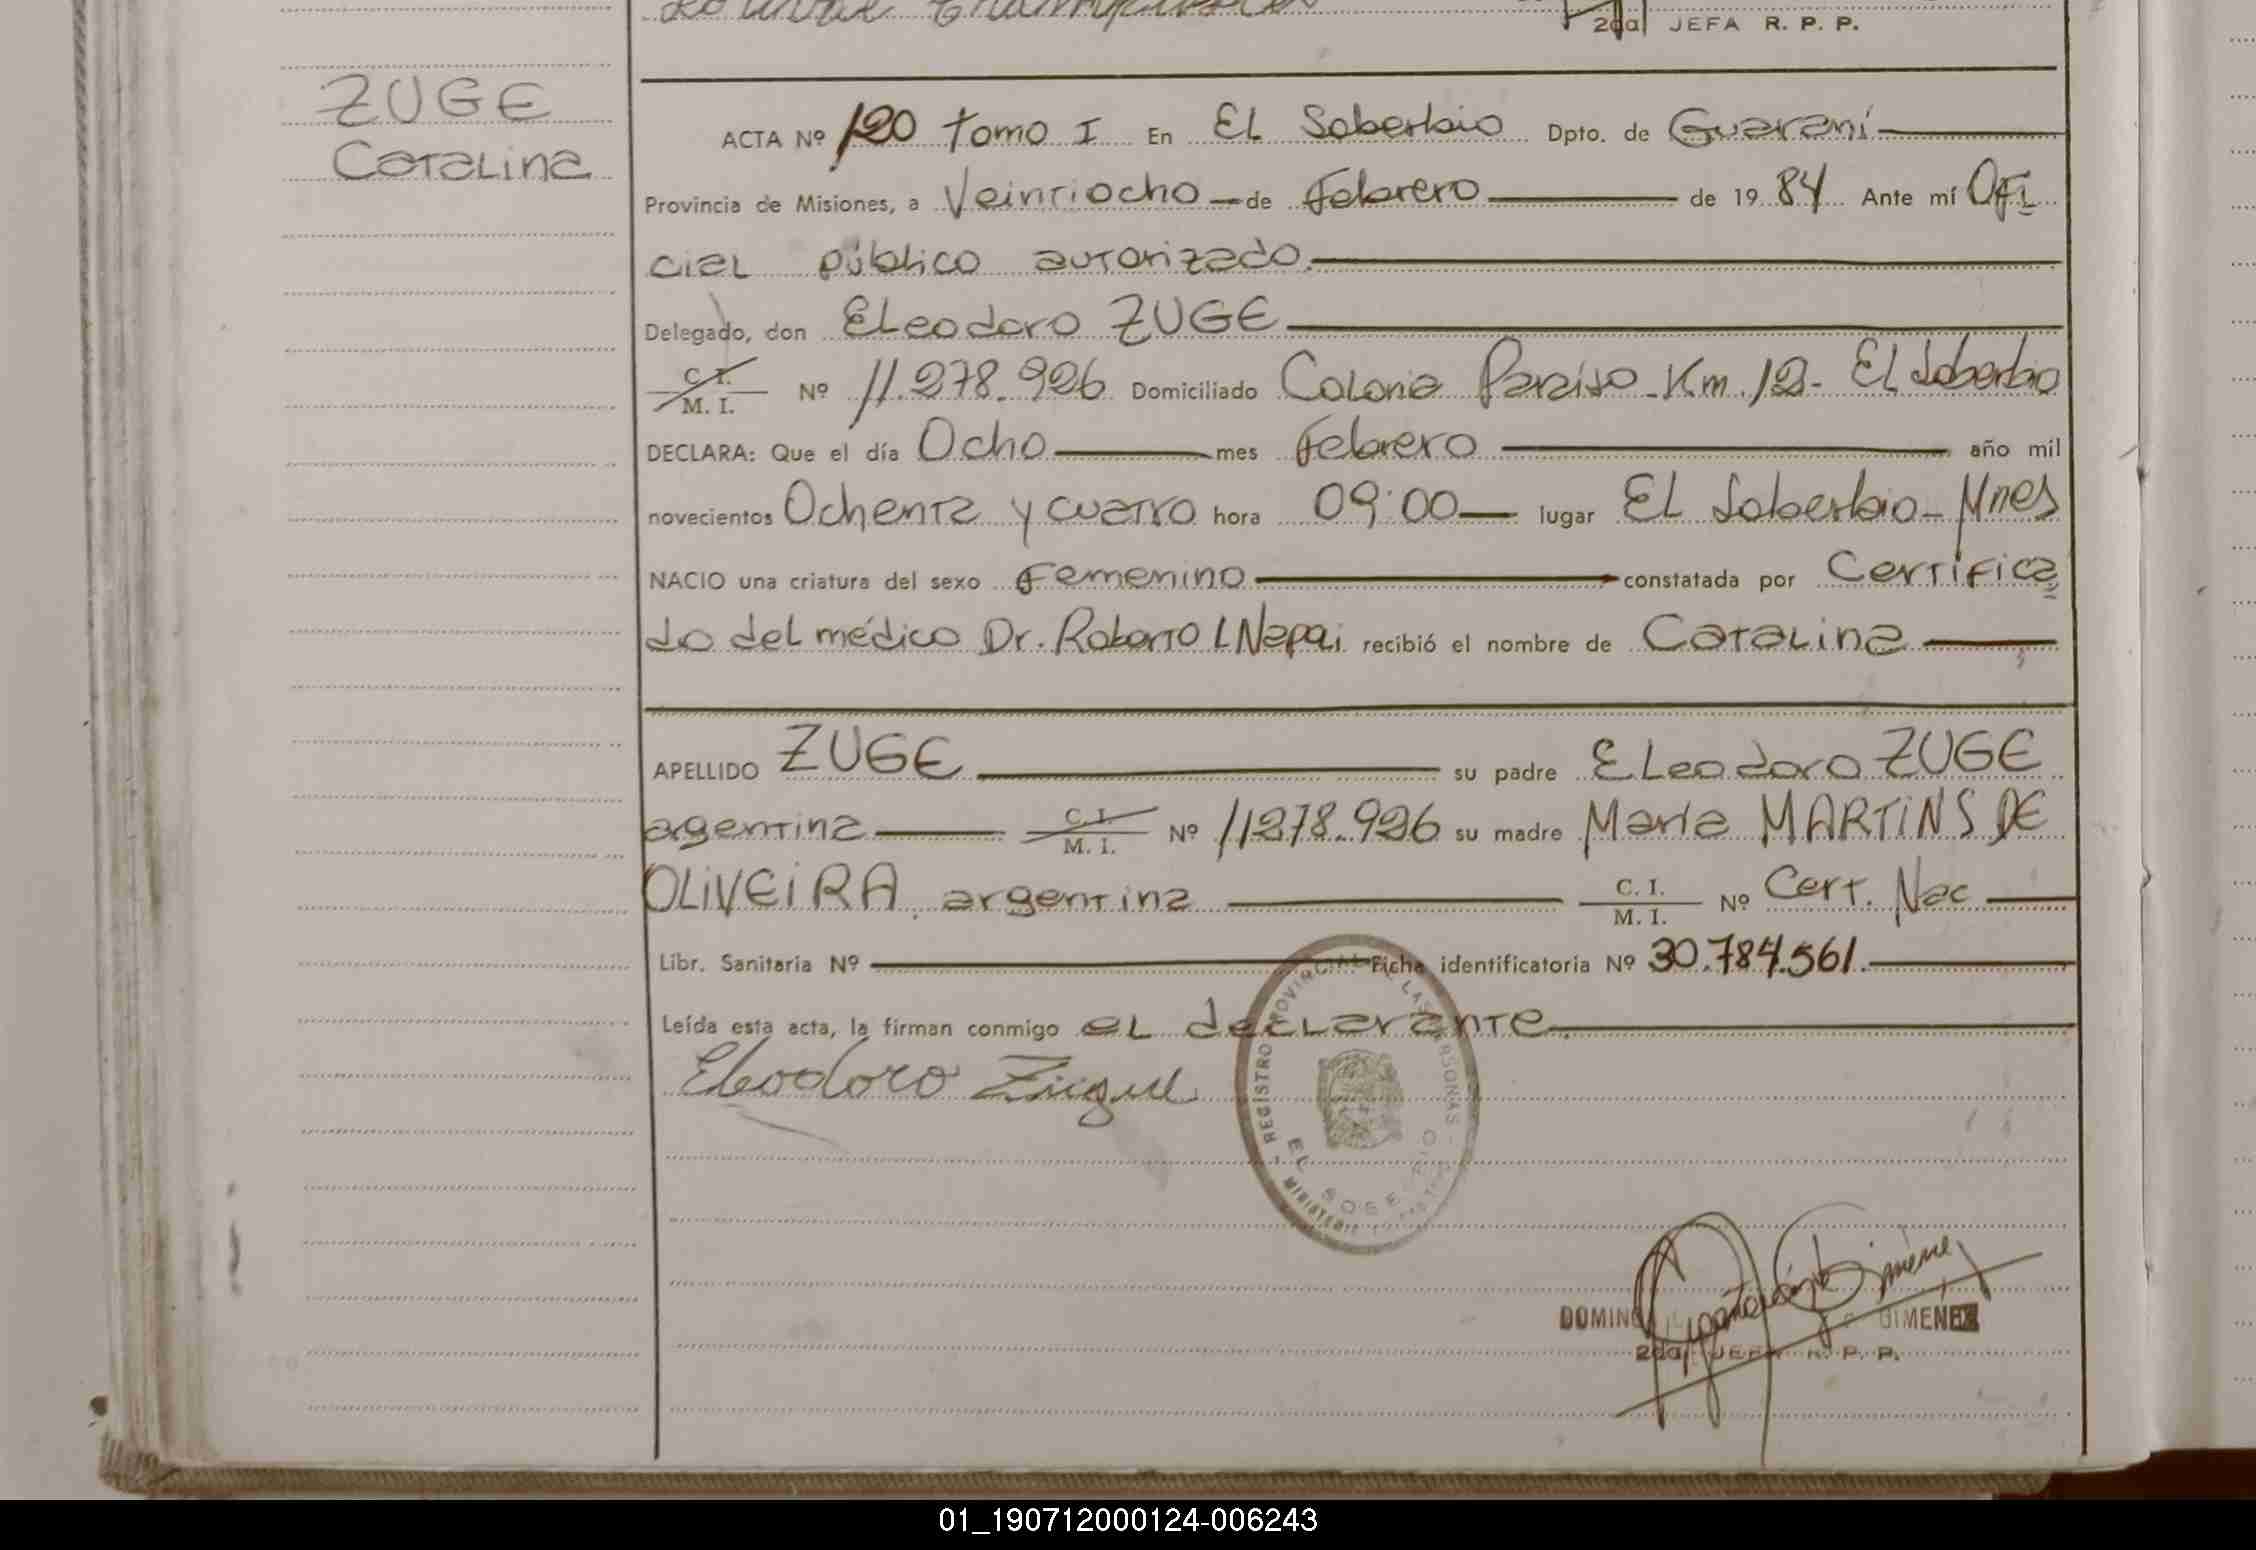 2da JEFA R. P. P.
ZUGE
Catalina
ACTA Nº 120 Tomo I En EL Soberbio Dpto. de Guaraní
Provincia de Misiones, a Veintiocho de Febrero de 1984 Ante mí Ofi
cial público autorizado.
Delegado, don Eleodoro ZUGE
C. I. / M. I. Nº 11.278.926 Domiciliado Colonia Paraíso - Km. 12 - El Soberbio
DECLARA: Que el día Ocho mes Febrero año mil
novecientos Ochenta y cuatro hora 09:00 lugar El Soberbio - Mnes
NACIO una criatura del sexo Femenino constatada por Certifica
do del médico Dr. Roberto L recibió el nombre de Catalina
APELLIDO ZUGE su padre Eleodoro ZUGE
argentina C. I. / M. I. Nº 11278.926 su madre María MARTINS DE
OLIVEIRA argentina C. I. / M. I. Nº Cert. Nac
Libr. Sanitaria Nº Ficha identificatoria Nº 30.784.561.
Leída esta acta, la firman conmigo el declarante.
Eleodoro
REGISTRO PROVINCIAL DE LAS PERSONAS
EL SOBERBIO
DOMING GIMÉNEZ
2da JEFA R. P. P.
01_190712000124-006243